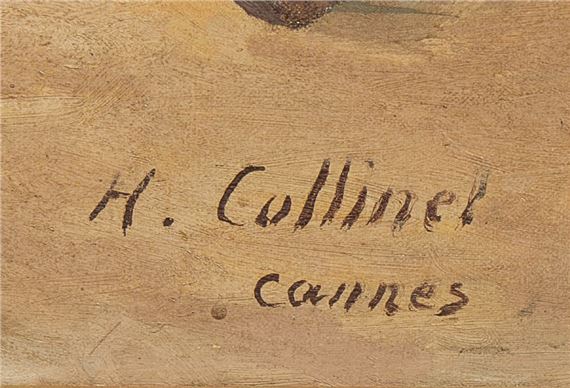 H. Cullinel
cannes